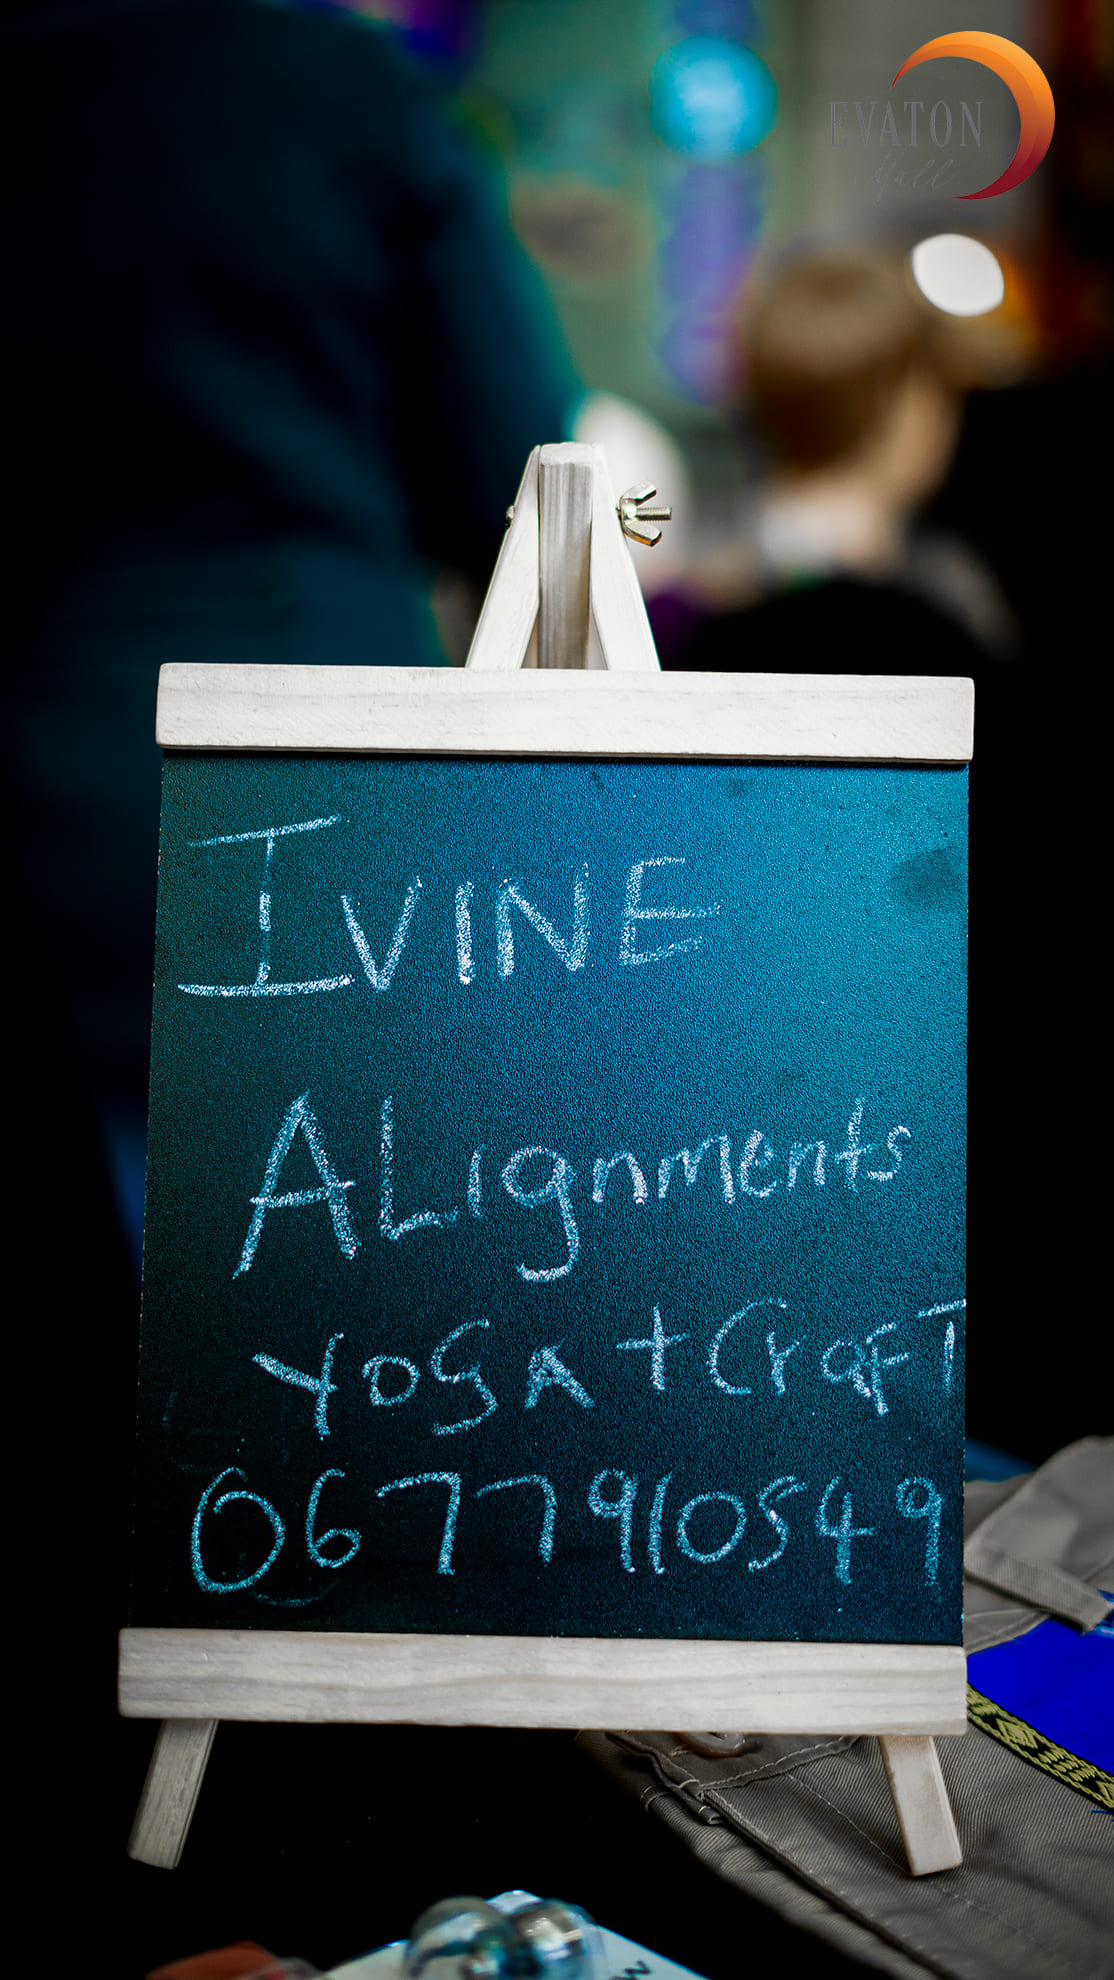 EVATON
Hall
IVINE
ALignments
YOGA + CraFT
0677910549